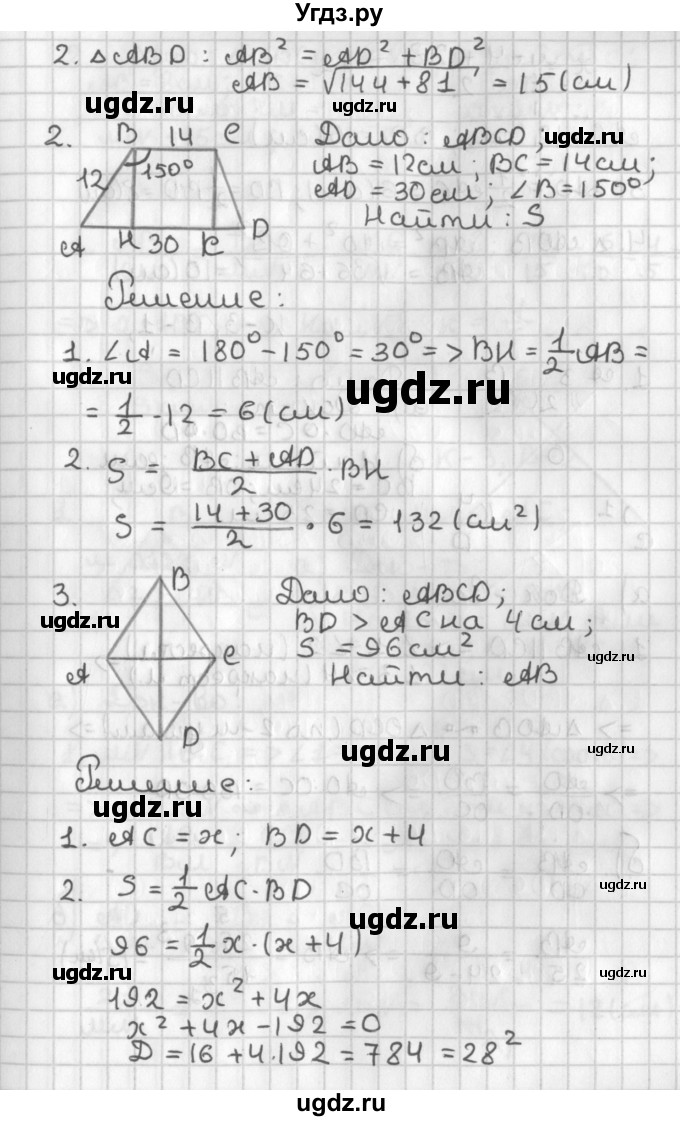 Угдз.ру
2. △ABD : AB² = AD² + BD²
AB = √144+81 = 15 (см)
ugdz.ru
ugdz.ru
2. B 14 C
12 150°
A H 30 K D
Дано: ABCD;
AB = 12 см; BC = 14 см;
AD = 30 см; ∠B = 150°
ugdz.ru
Найти: S
Решение:
1. ∠A = 180° - 150° = 30° => BH = 1/2 AB =
ugdz.ru
ugdz.ru
ugdz.ru
= 1/2 · 12 = 6 (см)
2. S = (BC + AD)/2 · BH
S = (14 + 30)/2 · 6 = 132 (см²)
3. B
A C
D
ugdz.ru
Дано: ABCD;
BD > AC на 4 см;
S = 96 см²
ugdz.ru
Найти: AB
ugdz.ru
ugdz.ru
Решение:
ugdz.ru
1. AC = x; BD = x + 4
2. S = 1/2 AC · BD
ugdz.ru
ugdz.ru
96 = 1/2 x · (x + 4)
ugdz.ru
ugdz.ru
192 = x² + 4x
x² + 4x - 192 = 0
D = 16 + 4 · 192 = 784 = 28²
ugdz.ru